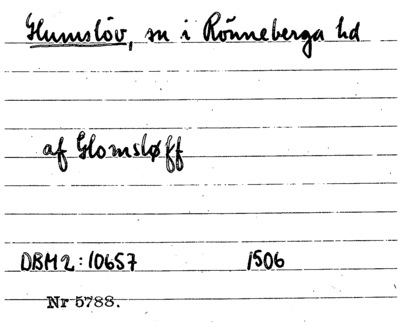 Glumslöv, sn i Rönneberga hd
af Glomsløff
DBM2:10657 1506
Nr 5788.